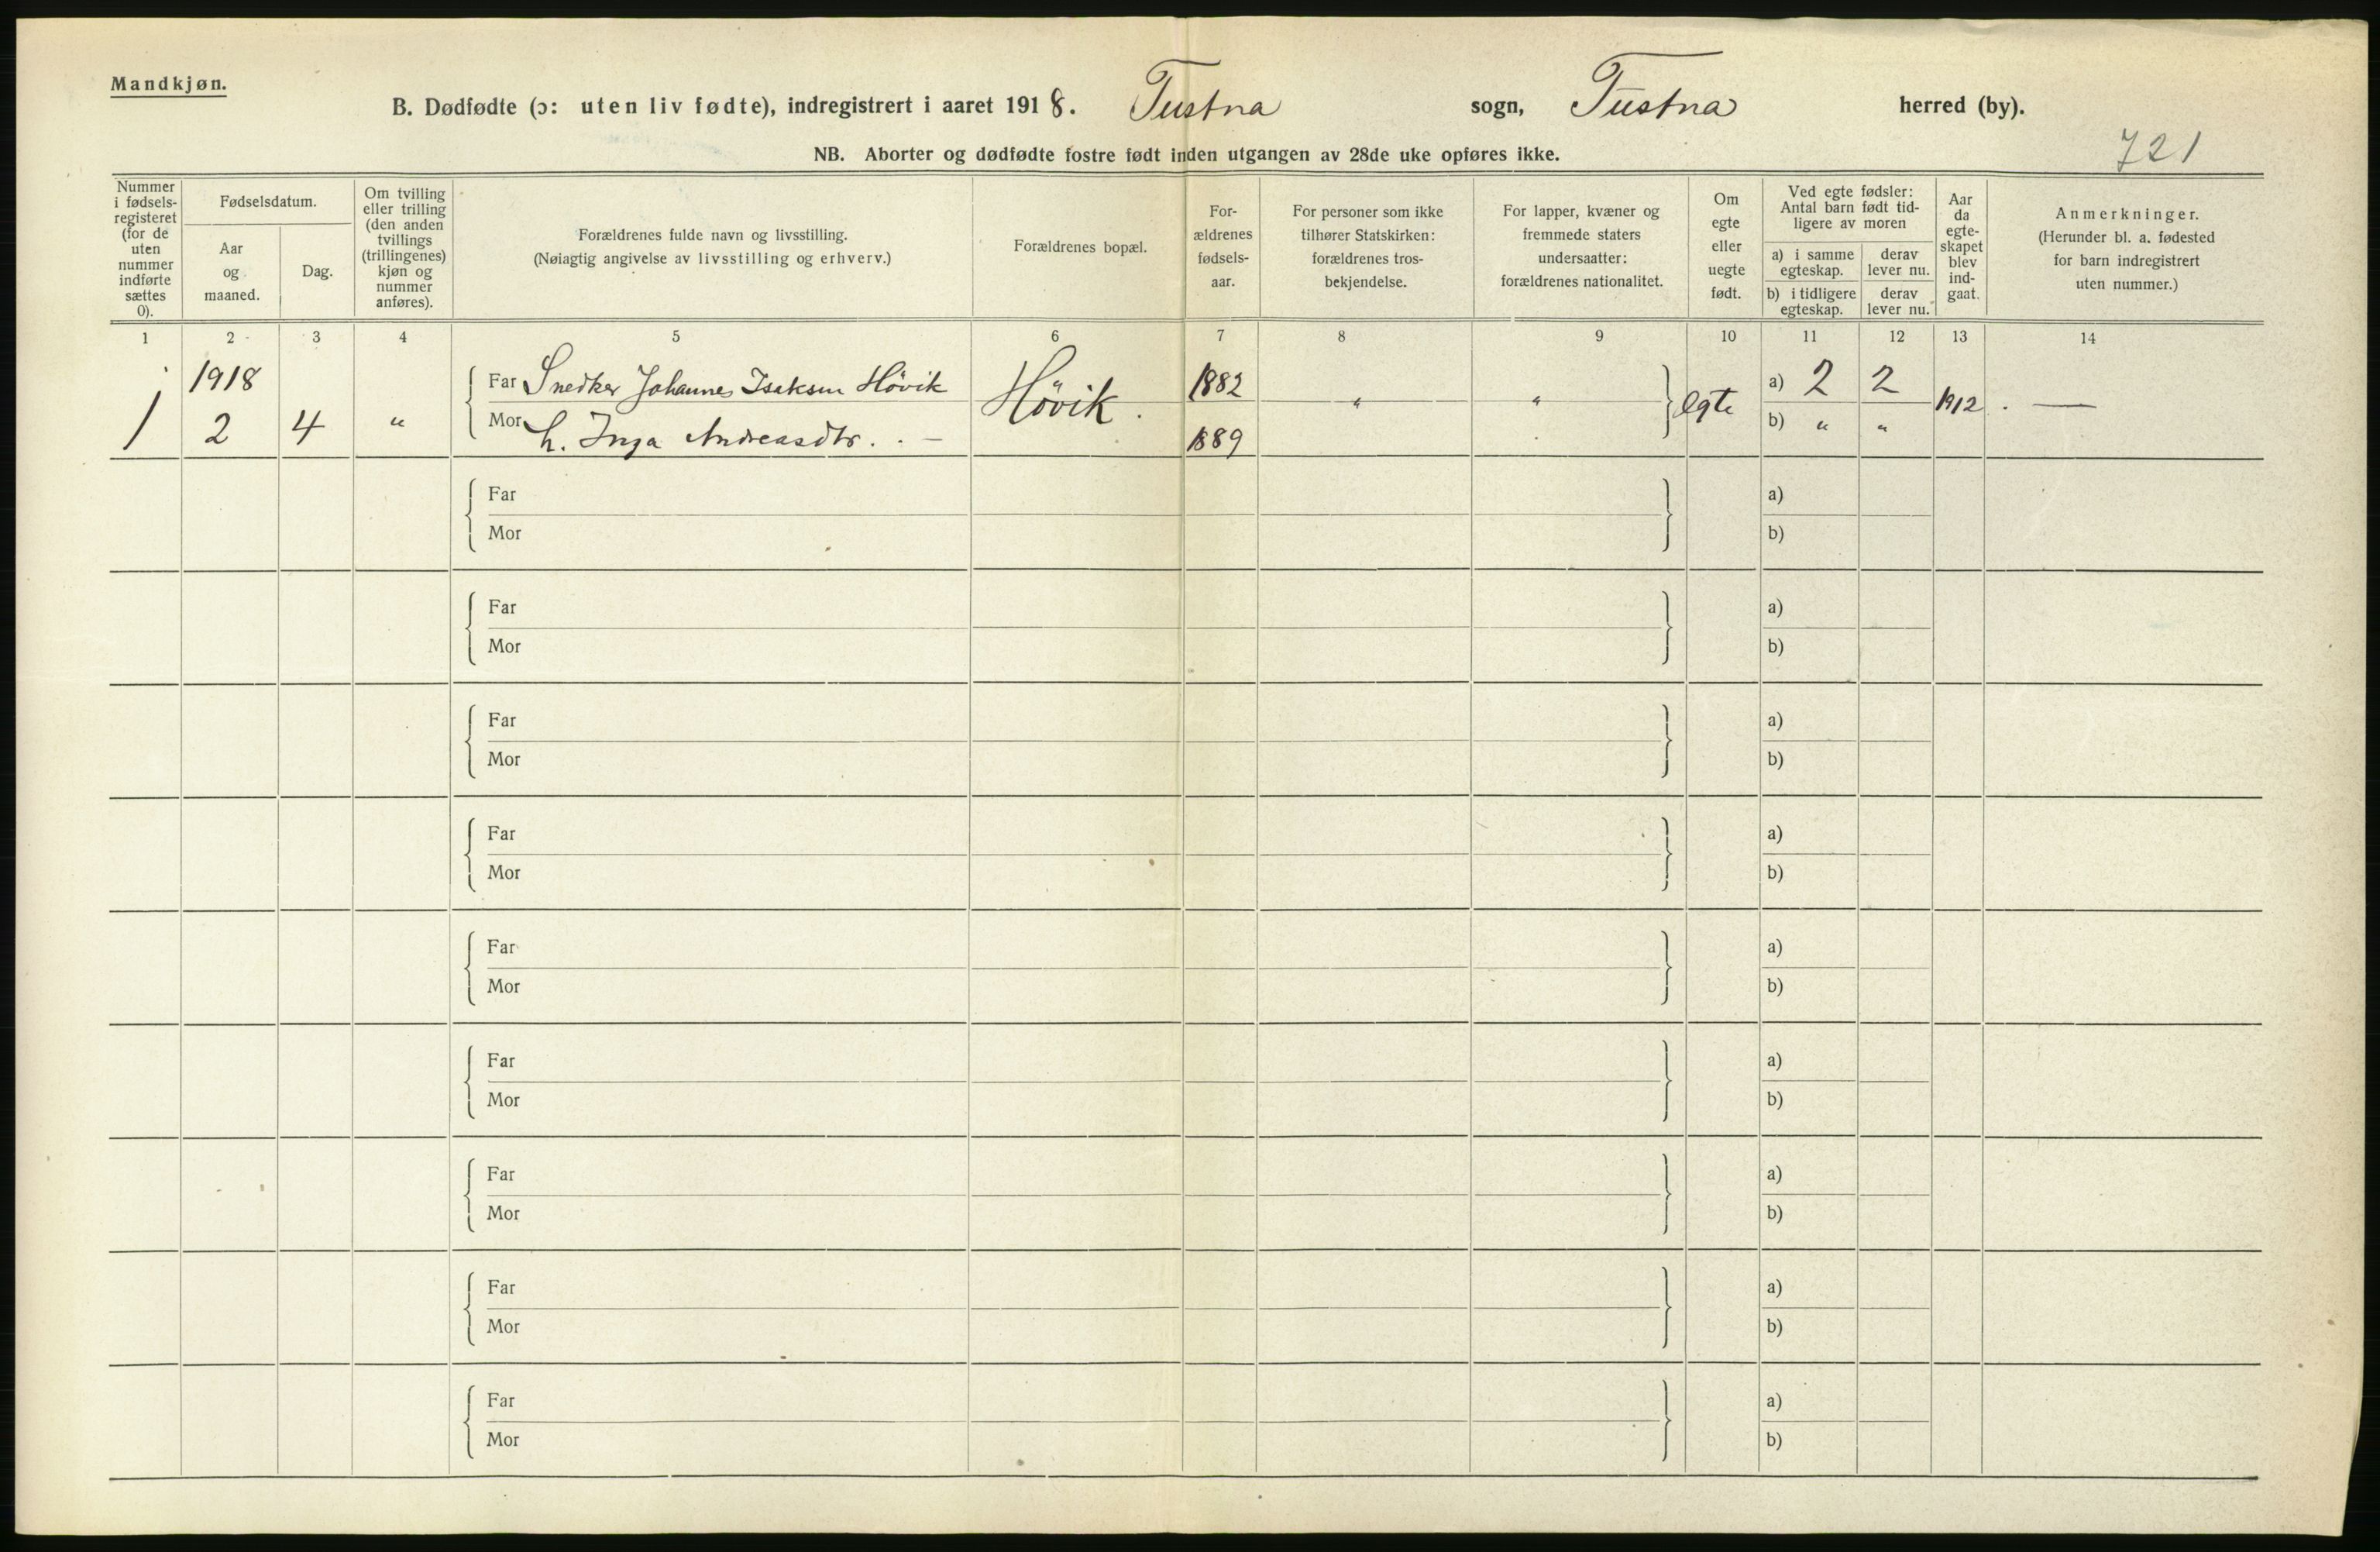 Mandkjøn.
B. Dødfødte (ɔ: uten liv fødte), indregistrert i aaret 1918. Tustna sogn, Tustna herred (by).
721
NB. Aborter og dødfødte fostre født inden utgangen av 28de uke opføres ikke.
Nummer
i fødsels-
registeret
(for de
uten
nummer
indførte
sættes
0).
Fødselsdatum.
Aar
og
maaned.
Dag.
Om tvilling
eller trilling
(den anden
tvillings
(trillingenes)
kjøn og
nummer
anføres).
Forældrenes fulde navn og livsstilling.
(Nøiagtig angivelse av livsstilling og erhverv.)
Forældrenes bopæl.
For-
ældrenes
fødsels-
aar.
For personer som ikke
tilhører Statskirken:
forældrenes tros-
bekjendelse.
For lapper, kvæner og
fremmede staters
undersaatter:
forældrenes nationalitet.
Om
egte
eller
uegte
født.
Ved egte fødsler:
Antal barn født tid-
ligere av moren
a) i samme
egteskap.
derav
lever nu.
b) i tidligere
egteskap.
derav
lever nu.
Aar
da
egte-
skapet
blev
ind-
gaat.
Anmerkninger.
(Herunder bl. a. fødested
for barn indregistrert
uten nummer.)
1 2 3 4 5 6 7 8 9 10 11 12 13 14
1918 Far Snedker Johannes Isaksen Hövik 1882 a) 2 2
1 2 4 " Mor h. Inga Andreasdtr. . — Hövik . 1889 " " Egte b) " " 1912 . —
Far a)
Mor b)
Far a)
Mor b)
Far a)
Mor b)
Far a)
Mor b)
Far a)
Mor b)
Far a)
Mor b)
Far a)
Mor b)
Far a)
Mor b)
Far a)
Mor b)